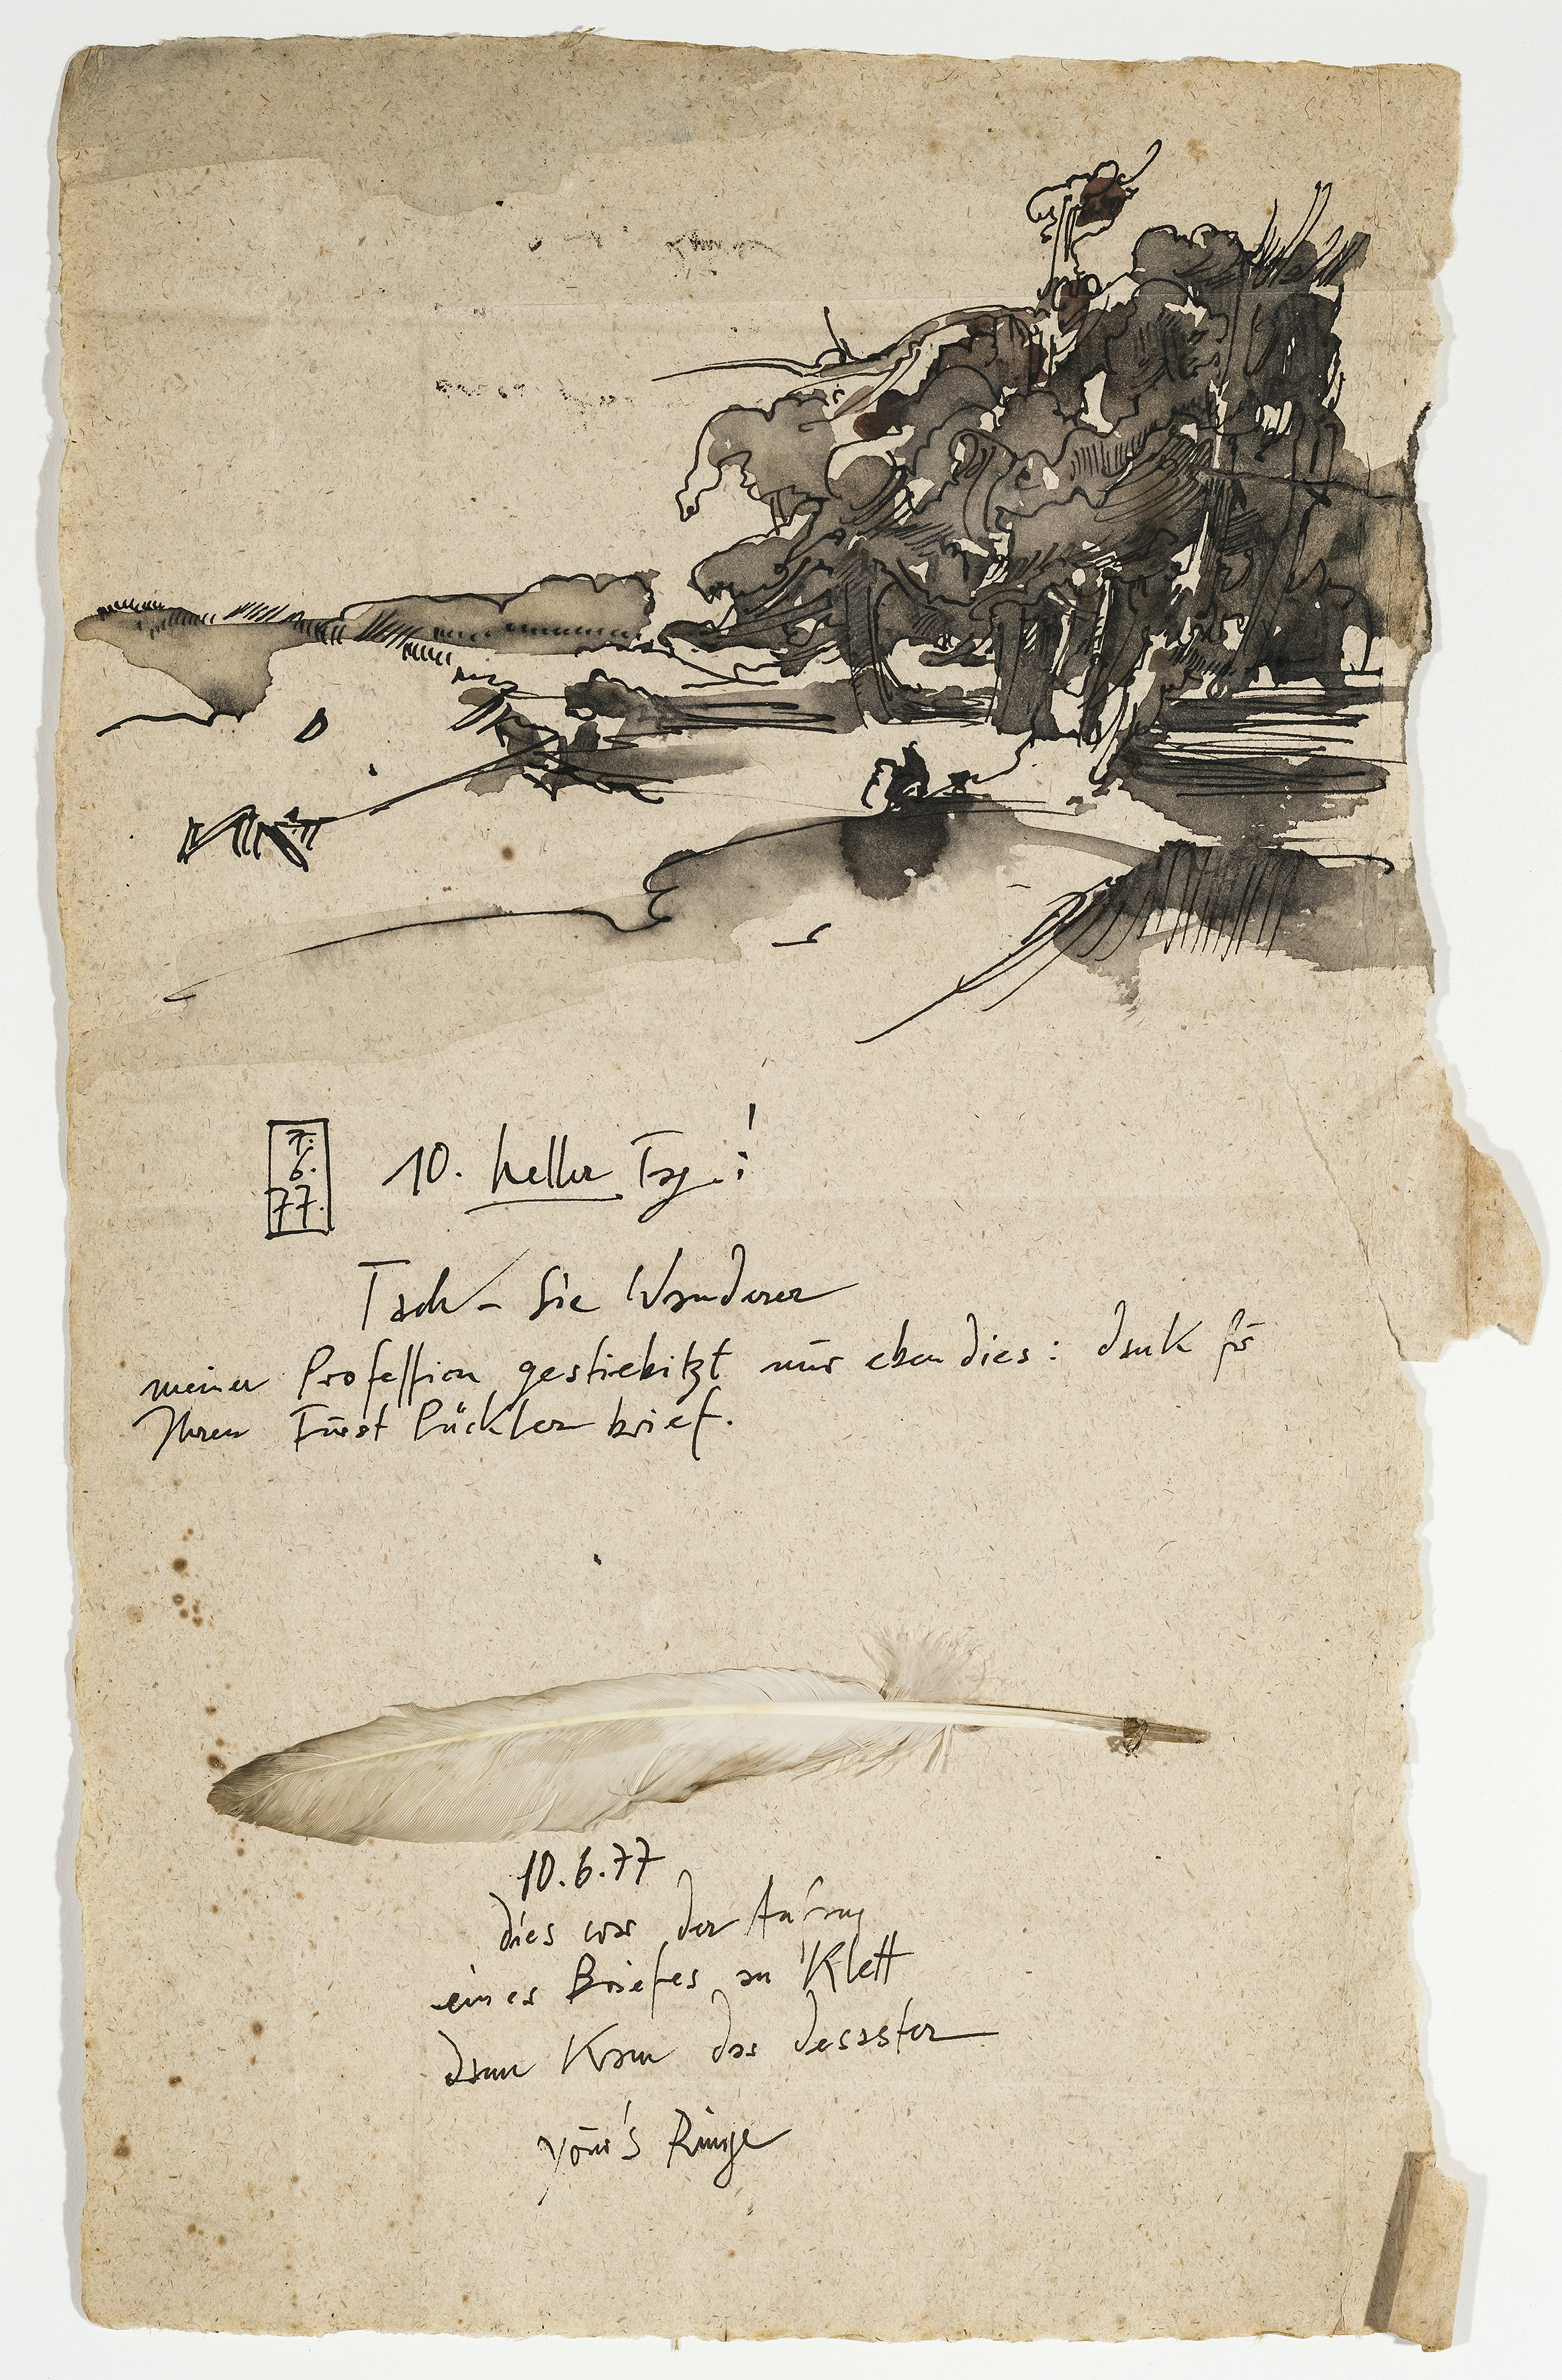 7.
6.
77.
10. heller Tag!
Tach – Sie Wanderer
meiner Profession gestiebitzt nur eben dies: dank für
Ihren Fürst Pückler brief.
10.6.77
dies war der Anfang
eines Briefes an Klett
dann kam das desaster
Ringe